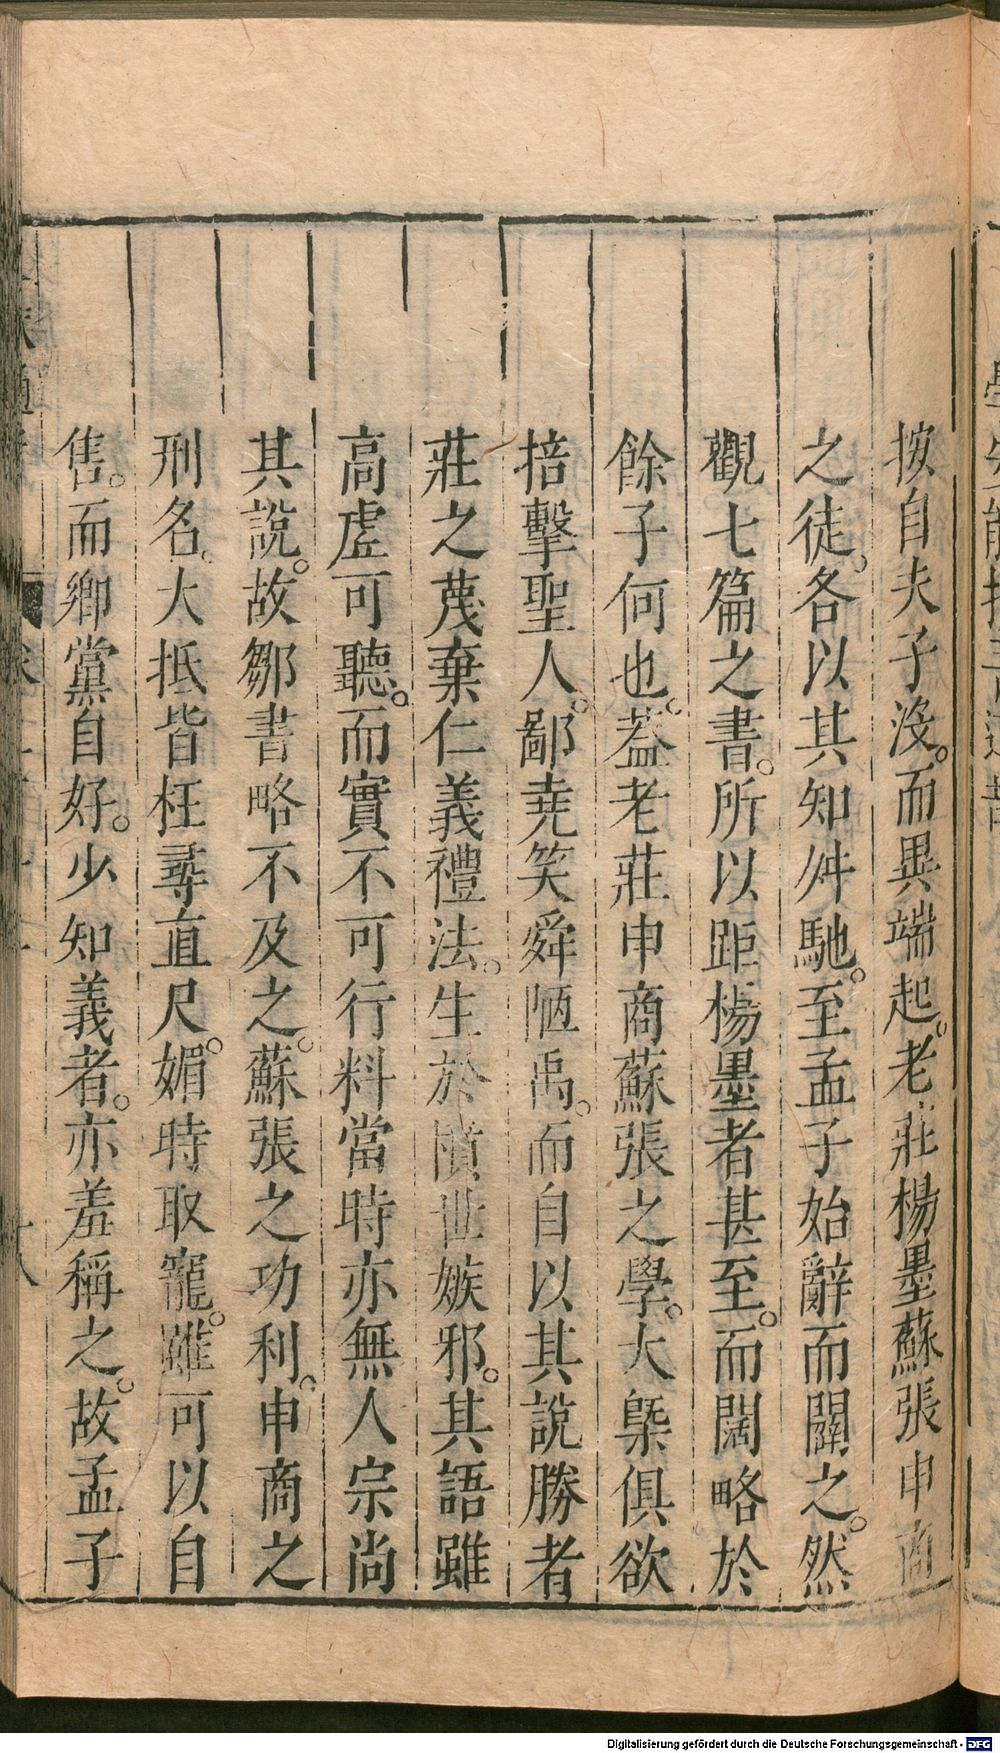 按自夫子沒。而異端起。老莊楊墨蘇張申商
之徒。各以其知舛馳。至孟子始辭而闢之。然
觀七篇之書。所以距楊墨者甚至。而闊略於
餘子何也。蓋老莊申商蘇張之學。大槩俱欲
掊擊聖人。鄙堯笑舜陋禹。而自以其說勝者
莊之蔑棄仁義禮法。生於憤世嫉邪。其語雖
高虛可聽。而實不可行料當時亦無人宗尚
其說。故鄒書略不及之。蘇張之功利。申商之
刑名。大抵皆枉尋直尺。媚時取寵。雖可以自
售。而鄉黨自好。少知義者。亦羞稱之。故孟子
Digitalisierung gefördert durch die Deutsche Forschungsgemeinschaft - DFG